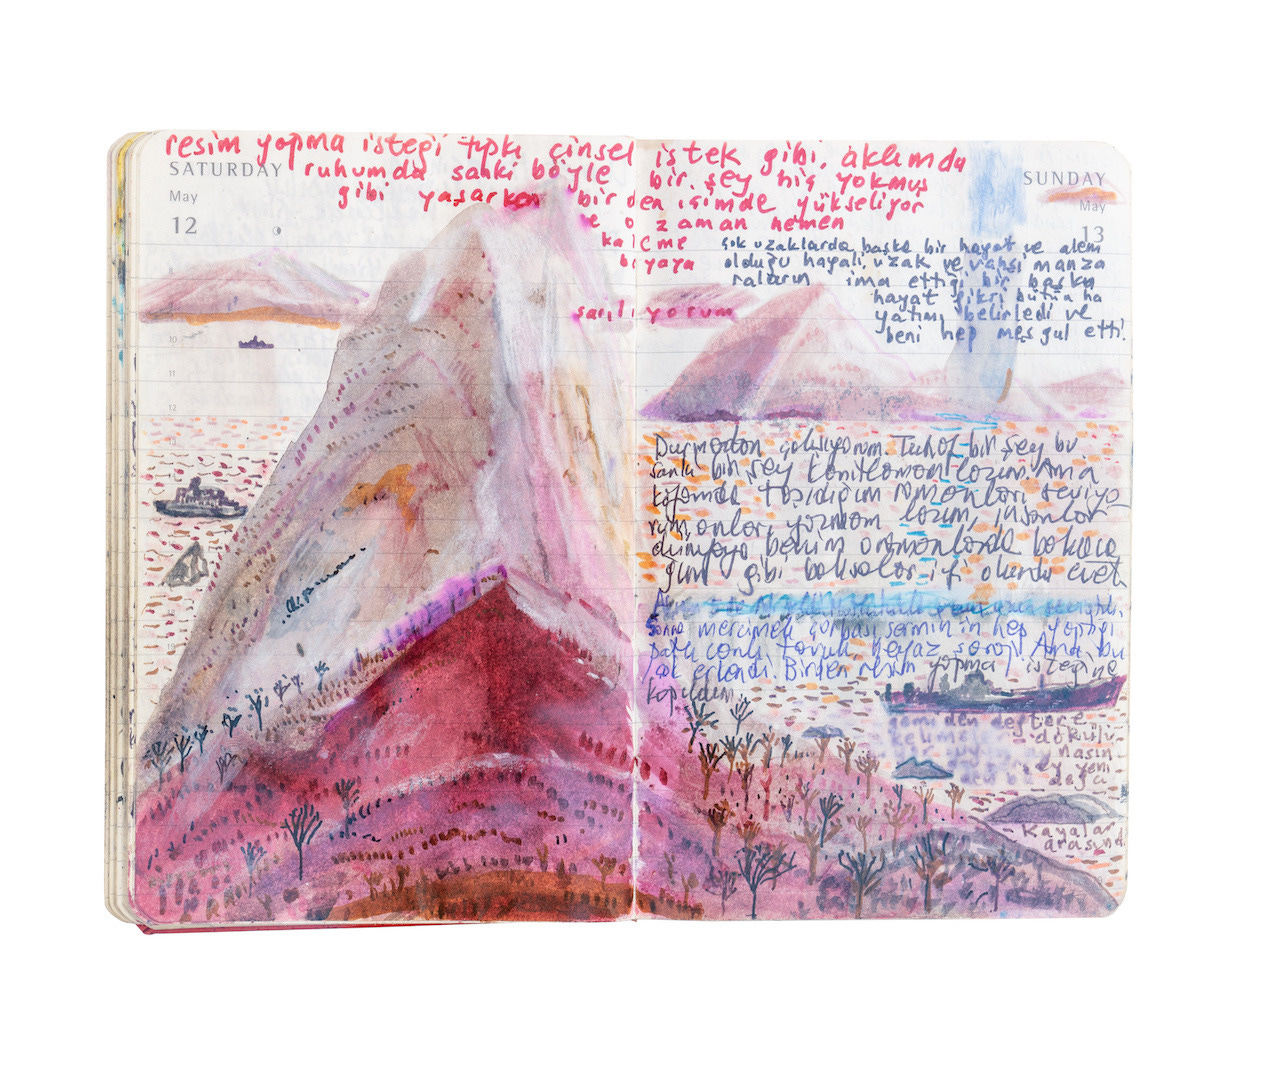 resim yapma isteği tıpkı cinsel istek gibi. aklımda
SATURDAY ruhumda sanki böyle bir şey hiç yokmuş SUNDAY
May gibi yaşarken birden içimde yükseliyor May
12 ve o zaman hemen 13
kaleme
boyaya
sarılıyorum
çok uzaklarda başka bir hayat ve alem
olduğu hayali, uzak ve vahşi manza
raların ima ettiği bir başka
hayat fikri bütün ha
yatımı belirledi ve
beni hep meşgul etti.
8
10
11
12
13
Durmadan çalışıyorum. Tuhaf bir şey bu
sanki bir şey kanıtlamam lazım. Ama
kafamda taşıdığım romanları seviyo
rum, onları yazmam lazım, insanlar
dünyaya benim romanlarda
gibi baksalar iyi olurdu evet
sonra mercimek çorbası Şermin'in hep yaptığı
patlıcanlı tavuk, beyaz şarap. Ama bu
çok erkendi. Birden resim yapma isteğine
kapıldım.
gemiden deftere
dökülü
nasın
ey yeni
deya
Kayalar
arasınd